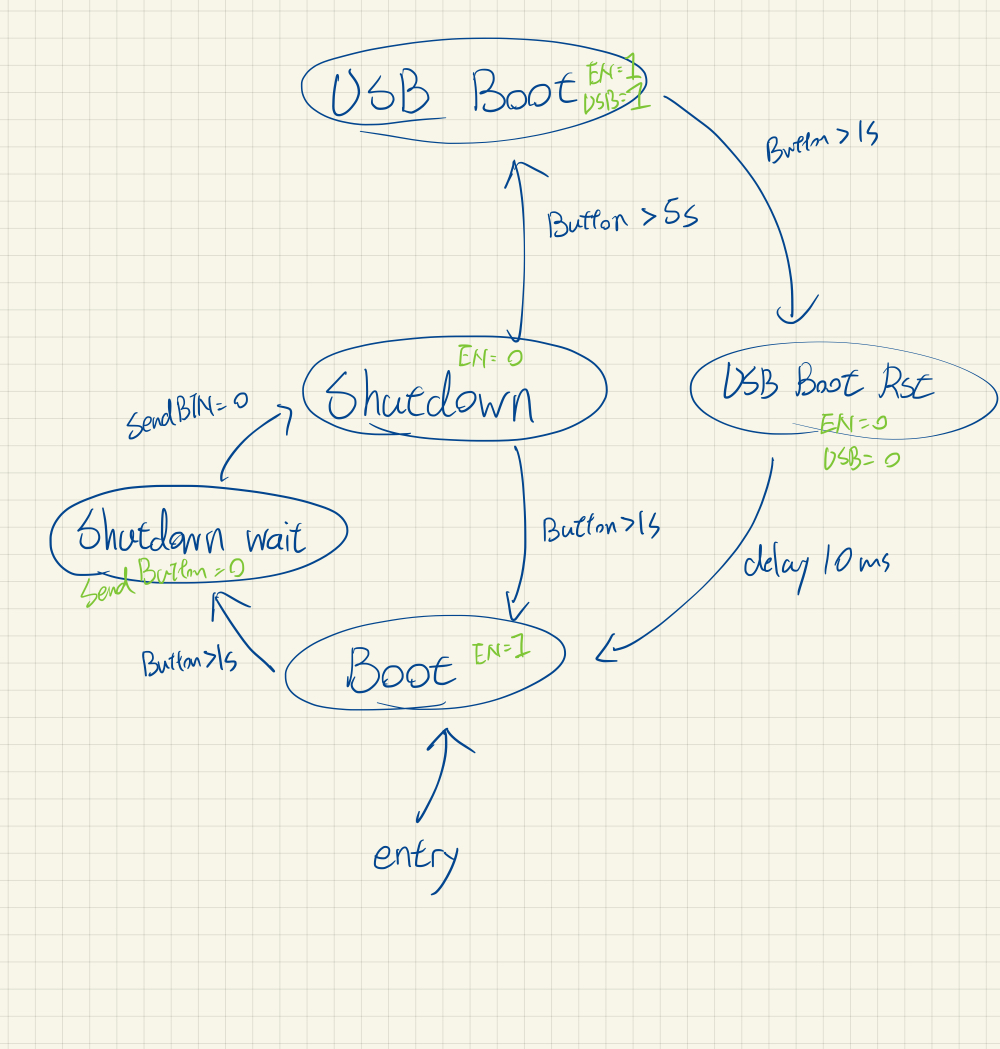 USB Boot EN=1
USB=1
Button >1s
Button >5s
EN=0
Shutdown
USB Boot Rst
EN=0
USB=0
SendBTN=0
Shutdown wait
Send Button=0
Button>1s
delay 10ms
Button>1s
Boot EN=1
entry